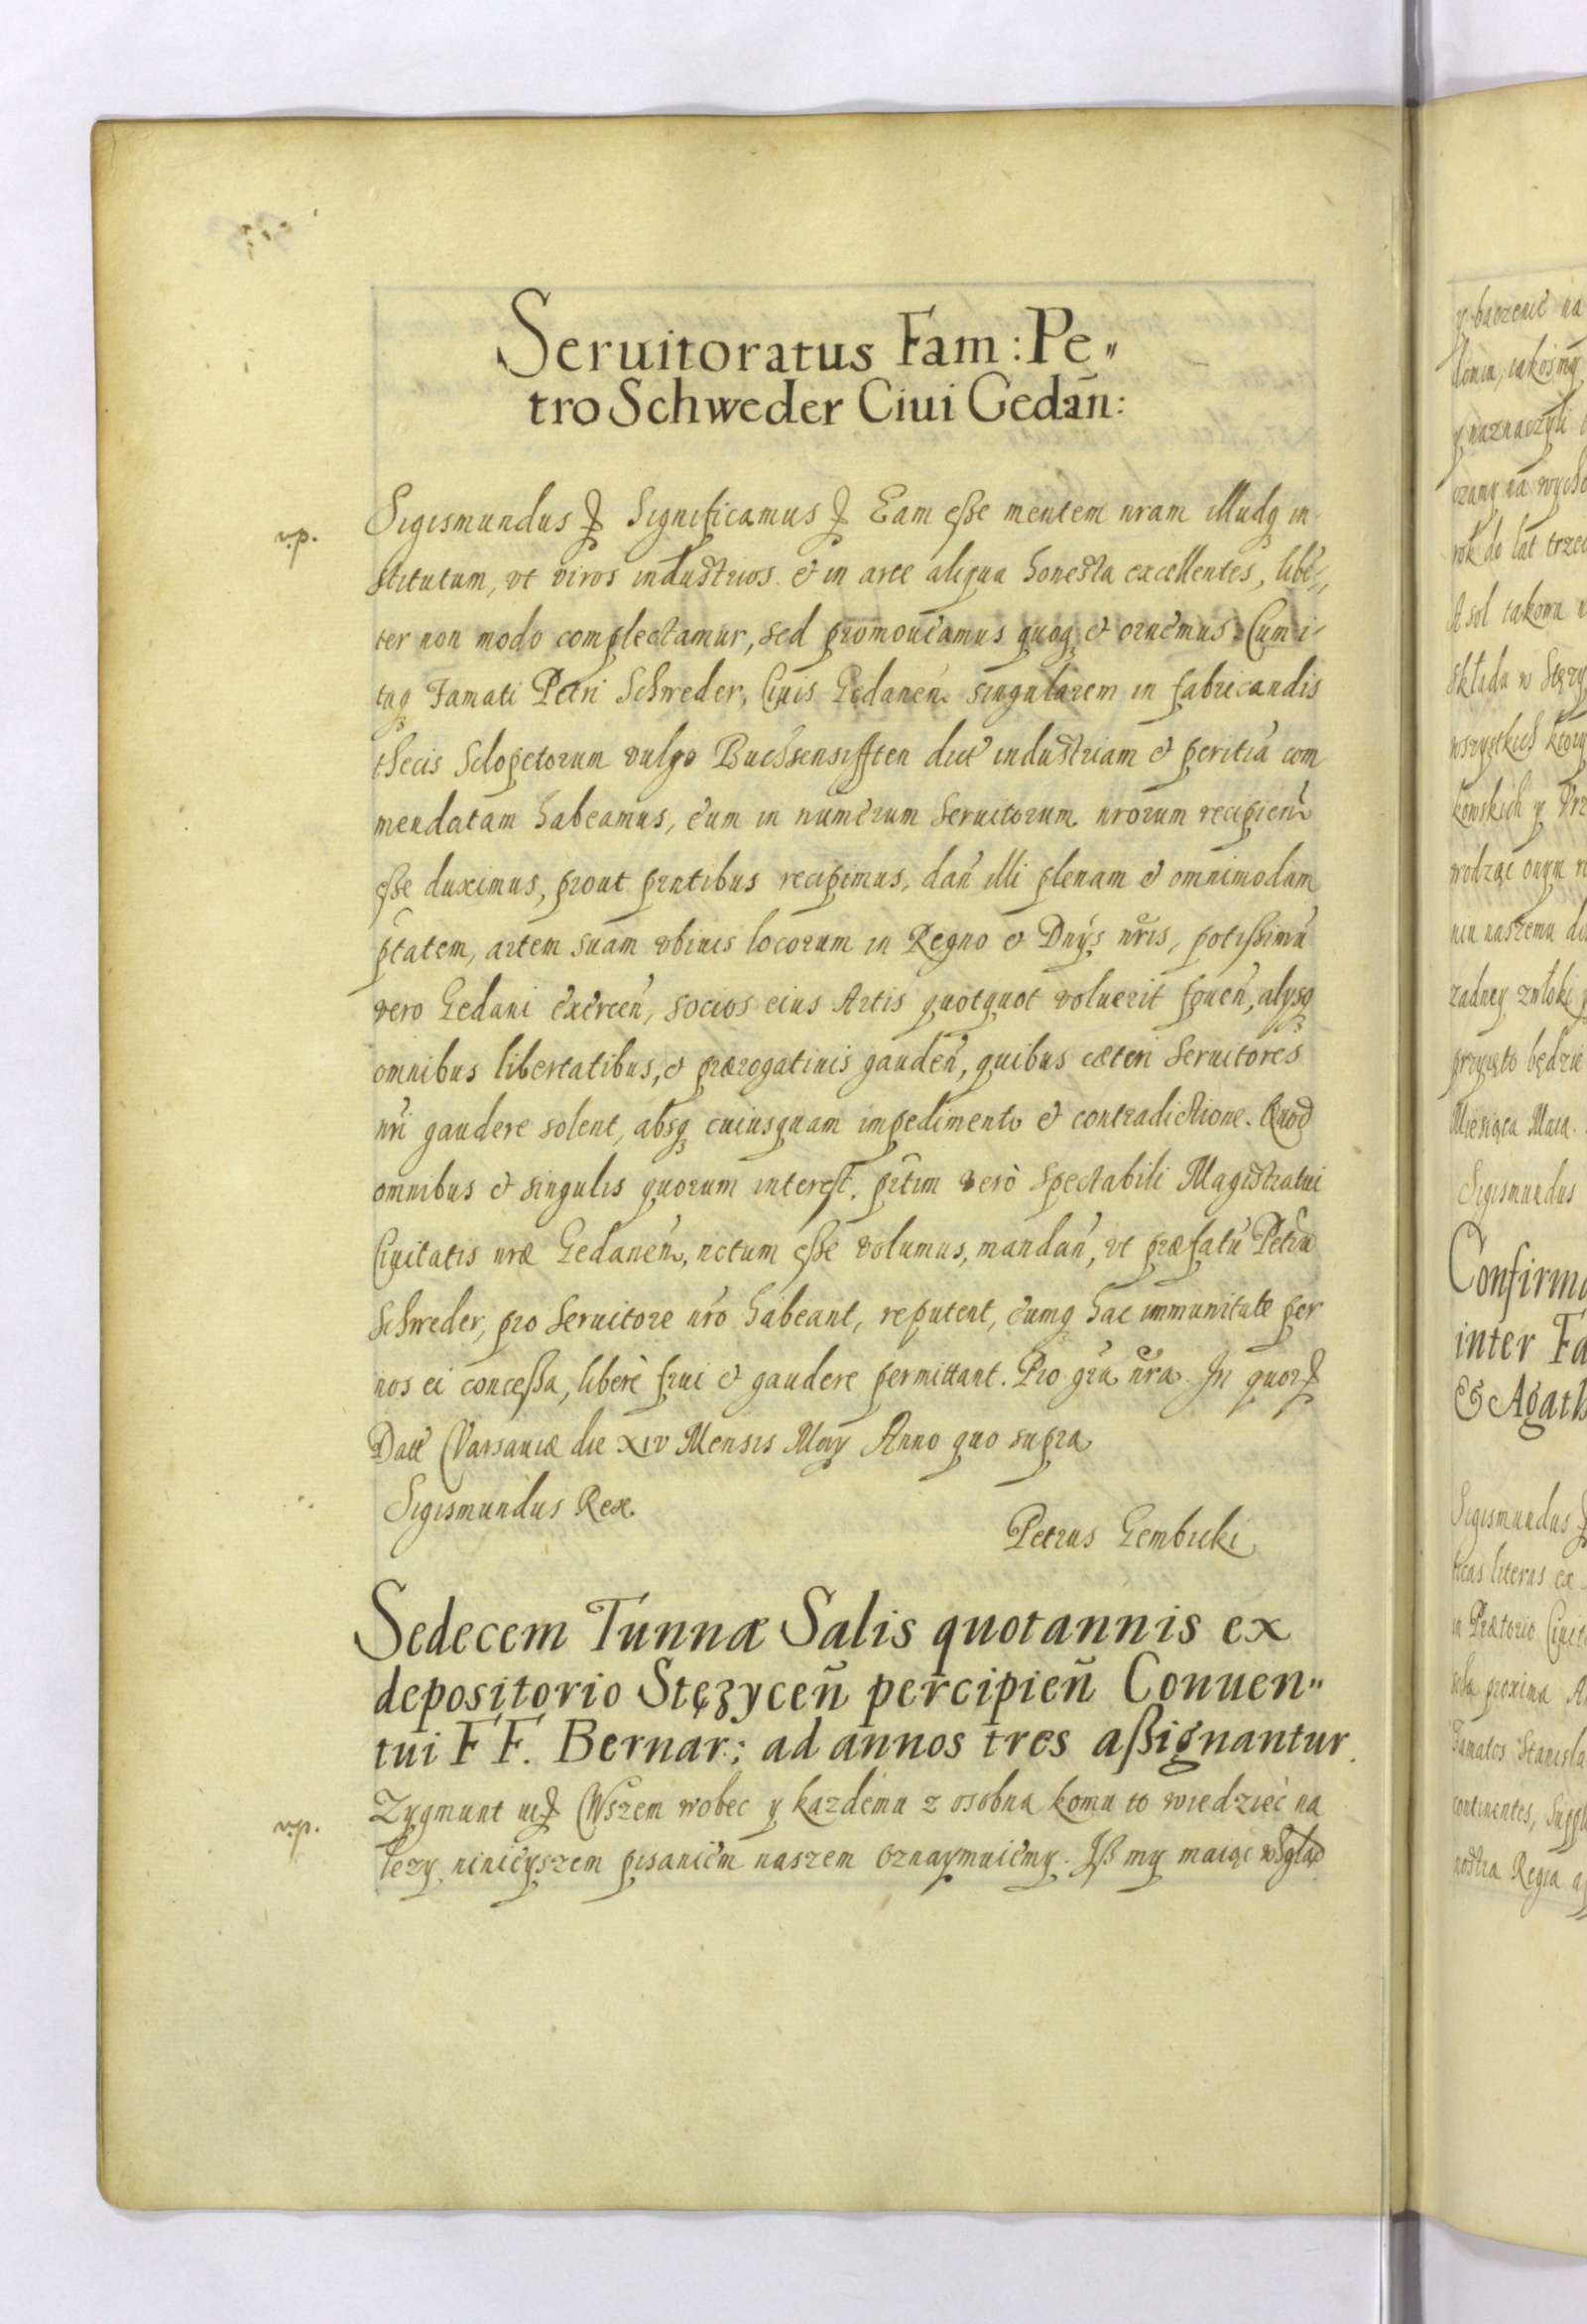 Seruitoratus Fam: Pe„
tro Schweder Ciui Gedan̄:
v.p.
Sigismundus Significamus Eam eſse mentem nram illudq in
stitutum, vt viros industrios et in arte aliqua honesta excellentes, libe„
ter non modo complectamur, sed promoueamus quoq et ornemus. Cum i„
taq Famati Petri Schweder, Ciuis Gedanen singularem in fabricandis
thecis Sclopetorum vulgo Buchsensifften dict industriam et peritia com
mendatam habeamus, eum in numerum Seruitorum nrorum recipien
eſse duximus, prout prntibus recipimus, dan illi plenam et omnimodam
ptatem, artem suam vbiuis locorum in Regno et Dnijs nris, potiſsimu
vero Gedani exercen, socios eius Artis quotquot voluerit fouen, alysq
omnibus libertatibus, et prærogatiuis gauden, quibus cæteri Seruitores
nri gaudere solent, absq cuiusquam impedimento et contradictione. Quod
omnibus et singulis quorum interest, prtim verò Spectabili Magistratui
Ciuitatis nræ Gedanen, notum eſse volumus, mandan, vt præfatu Petru
Schweder, pro Seruitore nro habeant, reputent, eumq hac immunitate per
nos ei conceſsa, liberè frui et gaudere permittant. Pro gra nra. In quor
Datt Varsauiæ die XIV Mensis May Anno quo supra
Sigismundus Rex.
Petrus Gembicki
Sedecem Tunnæ Salis quotannis ex
depositorio Stęzycen̄ percipien̄ Conuen„
tui FF. Bernar: ad annos tres aſsignantur.
v.p.
Zygmunt Wszem wobec y kazdemu z osobna komu to wiedzieć na
lezy, ninieyszem pisaniem naszem oznaymuiemy. Iß my maiąc wzgląd
y baczenie na
y naznaczyli
rok do lat trzec
A sol takowa
składu w Stęzy
wszystkich ktory
kowskich y Prz
wodząc onym
niu naszemu
zadney zwłoki
przyięto będzie
Miesiąca Maia.
Sigismundus
Confirma
inter Fa
& Agath
Sigismundus
ticas literas ex
in Prætorio Ciuit
proxima A
Famatos Stanisla
continentes, Suppl
nostra Regia a